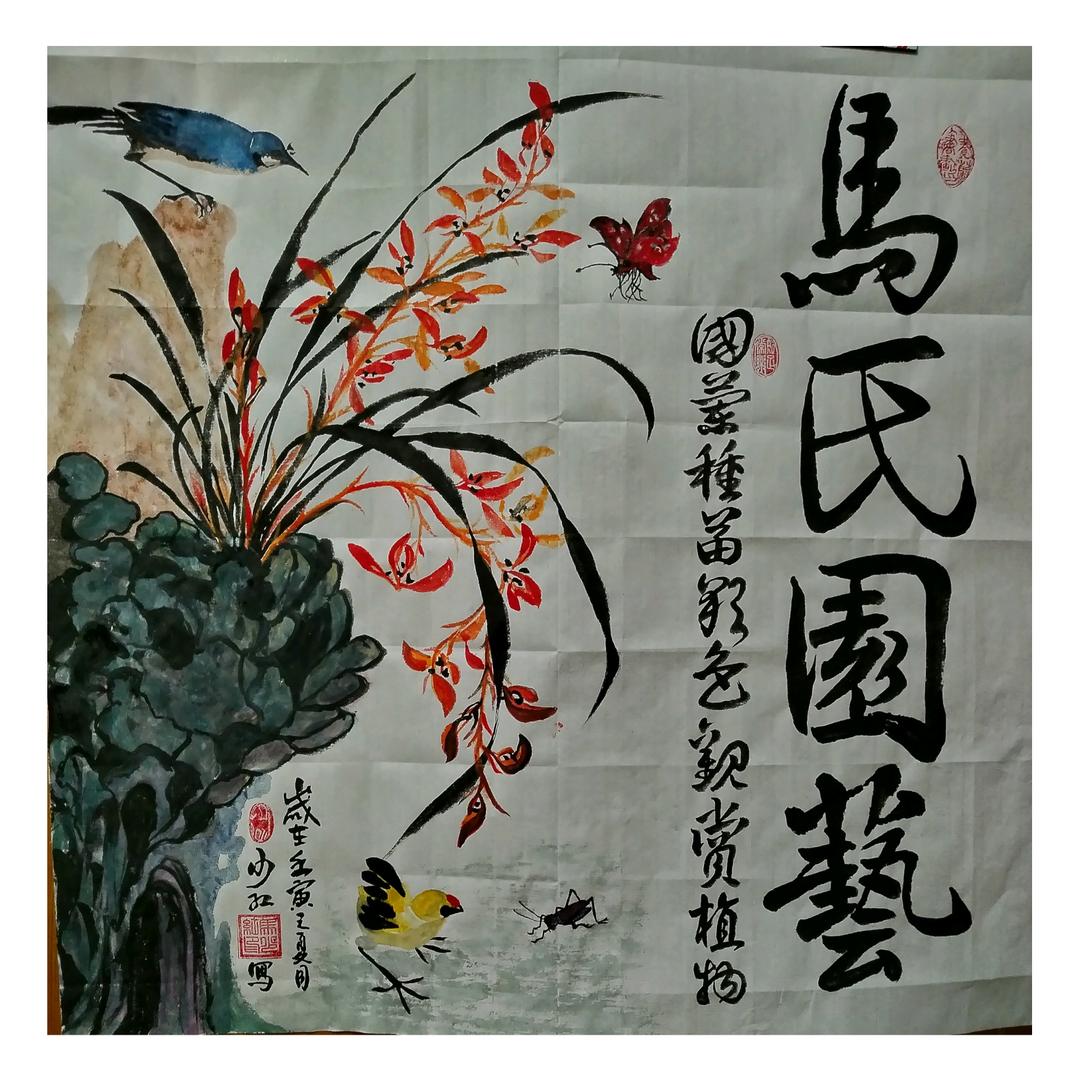 馬氏園藝
國蘭種苗彩色觀賞植物
歲在壬寅之夏月
少紅
寫